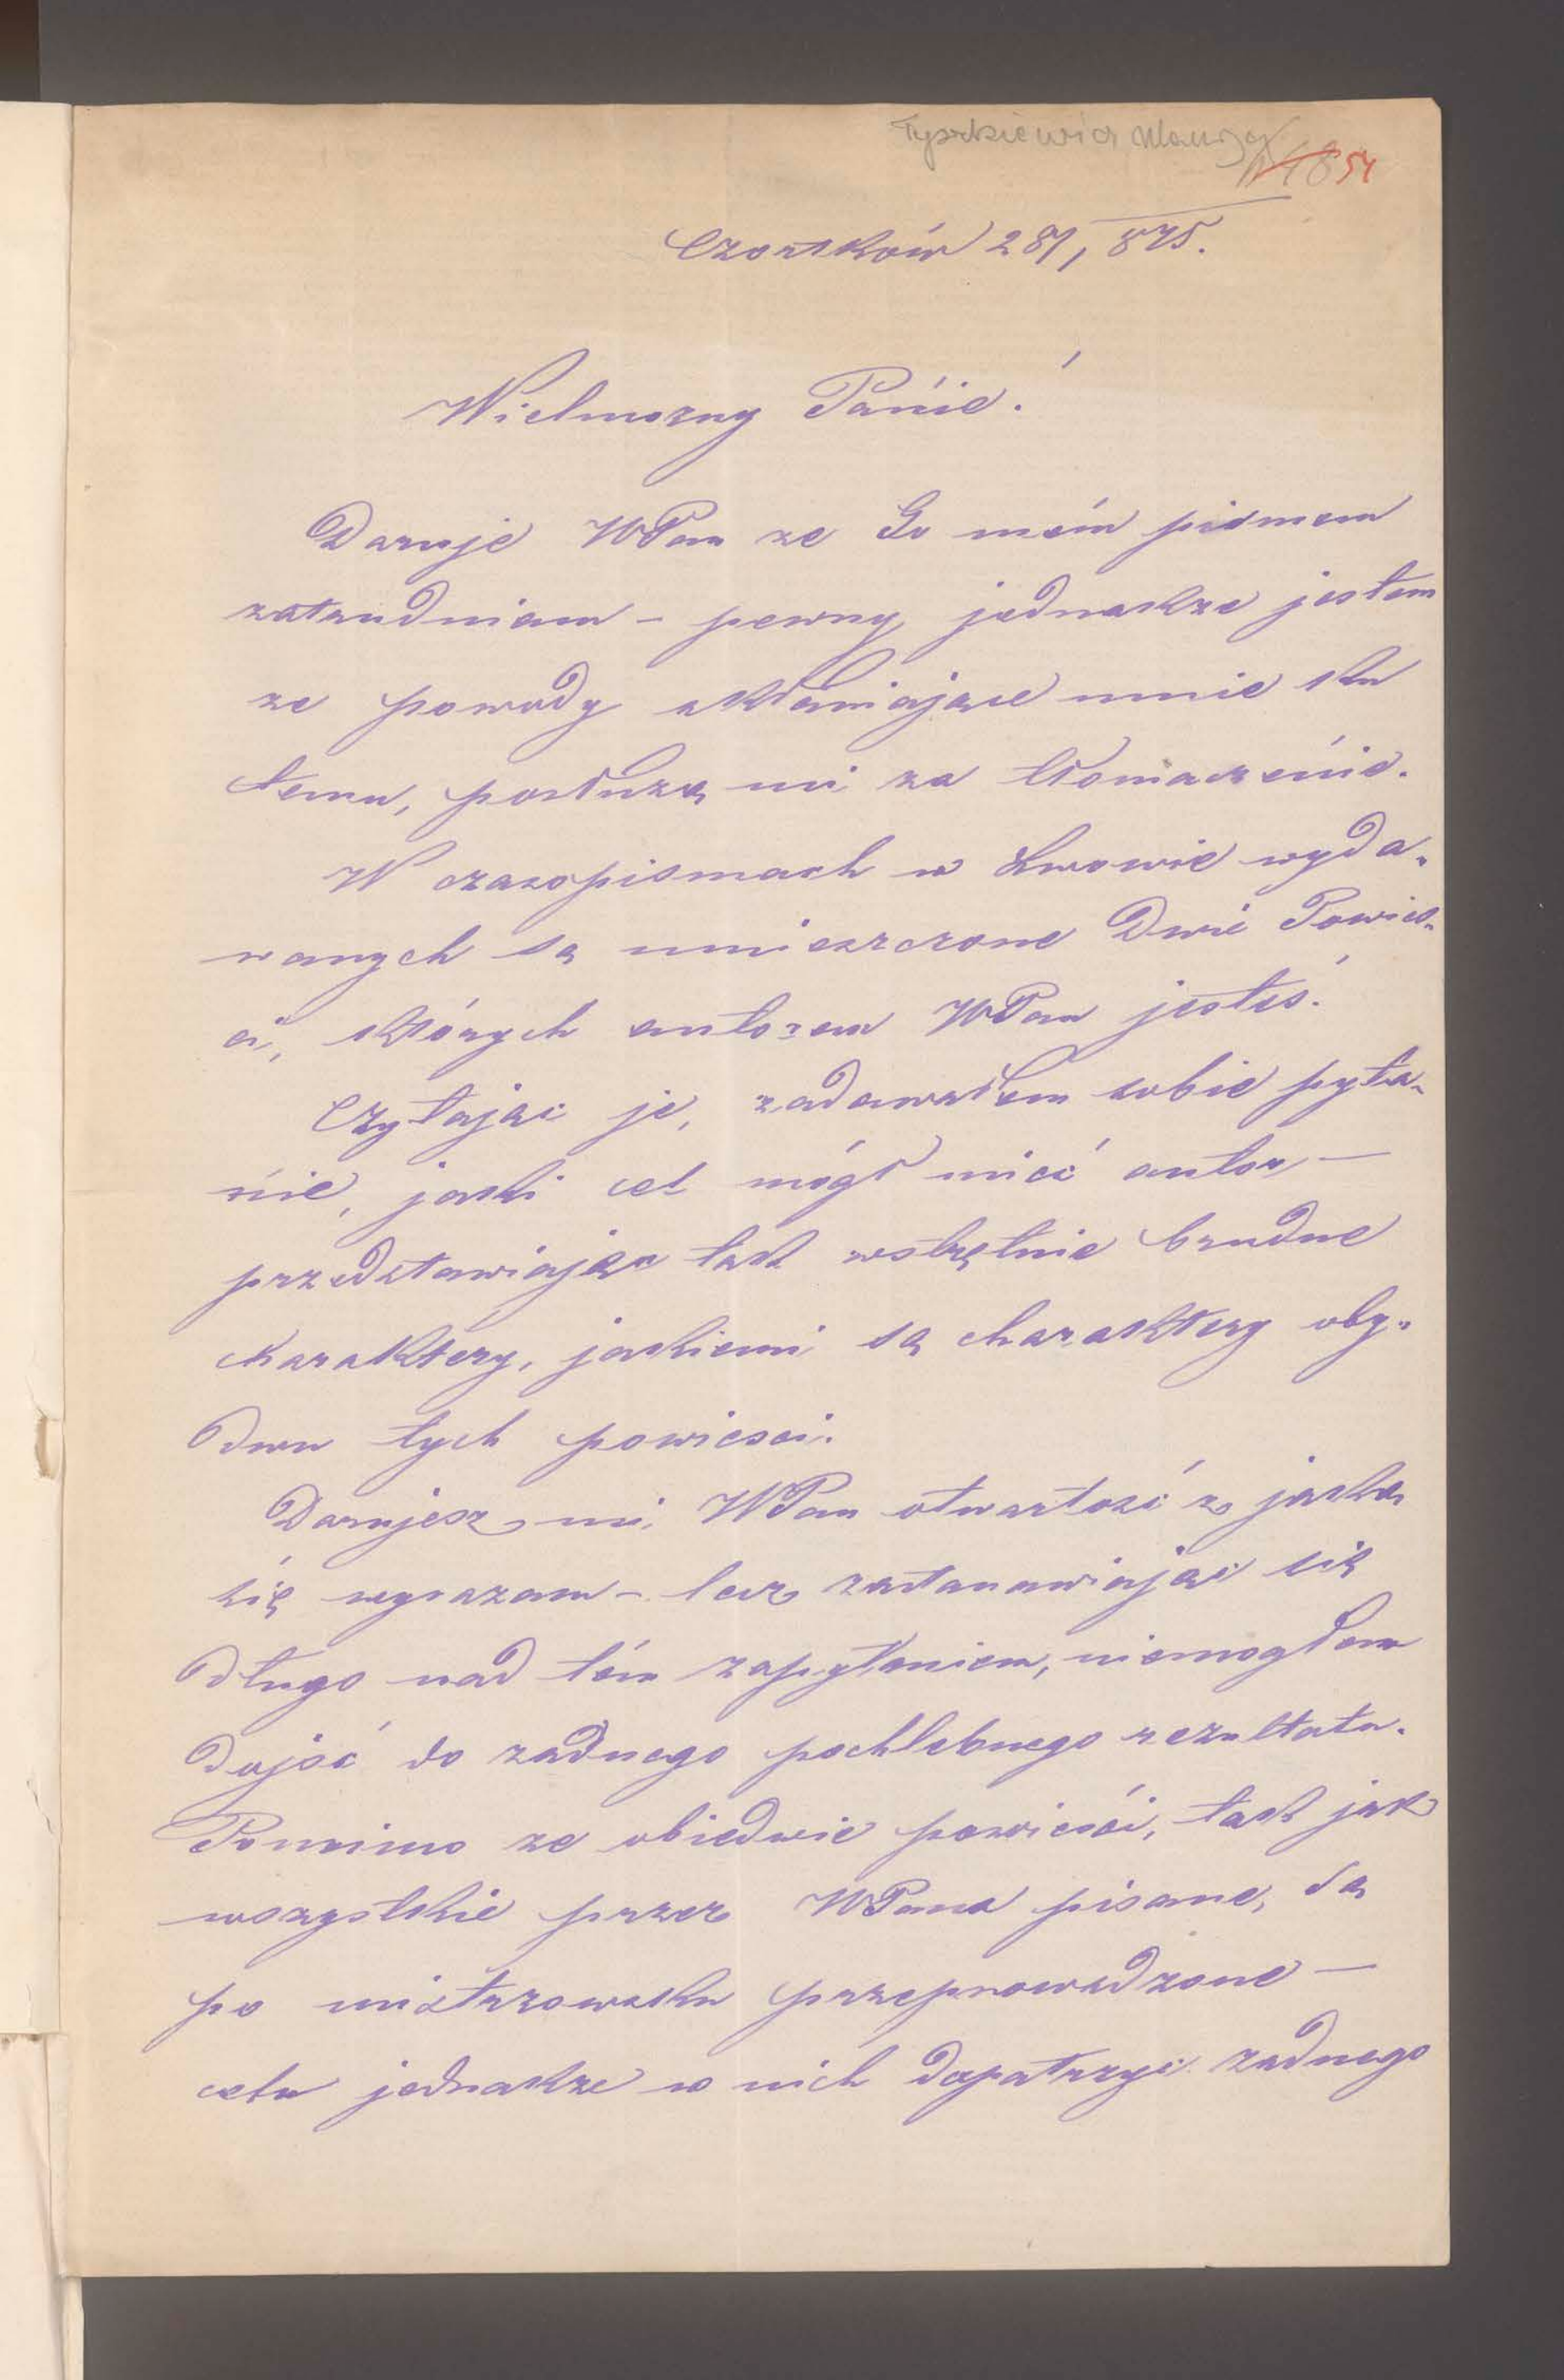 Tyszkiewicz
54
Czortków 28/1, 875.
Wielmozny Pańie!
Daruje WPan ze Go mém pismem
zatrudniam – pewny jednakze jestem
ze powody skłaniające mnie ku
temu, posłuzą mi za tłomaczeńie.
W czasopismach w Lwowie wyda-
wanych są umieszczone dwie Powieś-
ci, których autorem WPan jesteś.
Czytając je, zadawałem sobie pyta-
ńie, jaki cel mógł mieć autor –
przedstawiając tak wstrętnie brudne
charaktery, jakiemi są charaktery oby-
dwu tych powiesci.
Darujesz mi WPan otwartość z jaką
śię wyrazam – lecz zastanawiając się
długo nad tém zapytaniem, niemogłem
dojść do zadnego pochlebnego rezultatu.
Pomimo ze obiedwie powieśći, tak jak
wszystkie przez WPana pisane, są
po mistrzowsku przeprowadzone –
celu jednakze w nich dopatrzyć zadnego